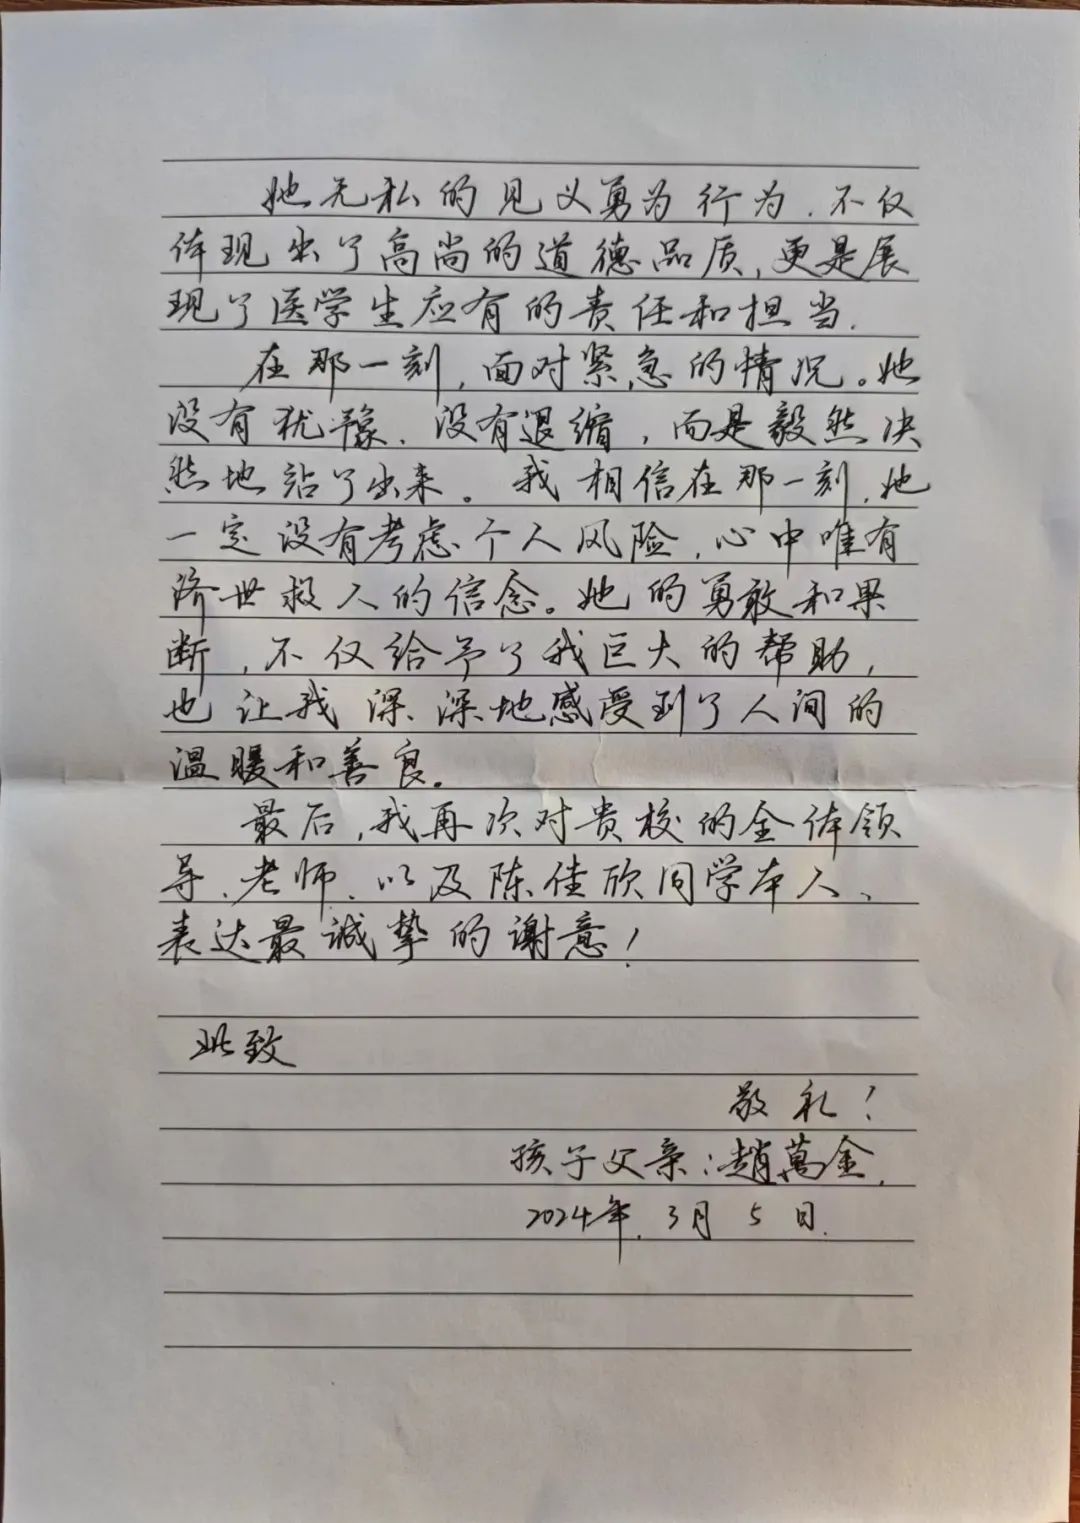 她无私的见义勇为行为.不仅
体现出了高尚的道德品质,更是展
现了医学生应有的责任和担当.
在那一刻,面对紧急的情况。她
没有犹豫、没有退缩,而是毅然决
然地站了出来。我相信在那一刻,她
一定没有考虑个人风险,心中唯有
济世救人的信念。她的勇敢和果
断,不仅给予了我巨大的帮助,
也让我深深地感受到了人间的
温暖和善良。
最后,我再次对贵校的全体领
导、老师、以及陈佳欣同学本人、
表达最诚挚的谢意!
此致
敬礼!
孩子父亲:趙萬金.
2024年.3月5日.